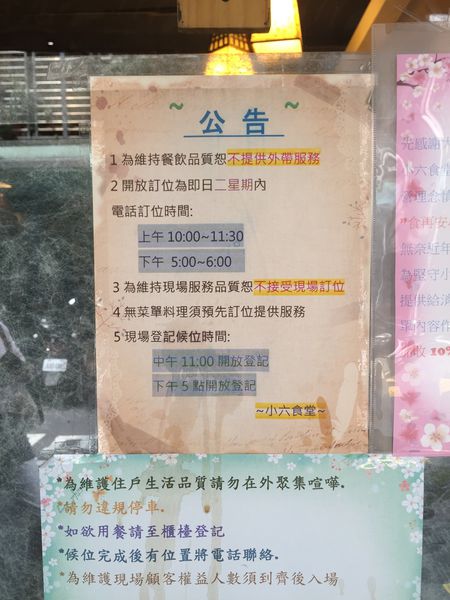 ~ 公告 ~
1 為維持餐飲品質恕不提供外帶服務
2 開放訂位為即日二星期內
電話訂位時間:
上午 10:00~11:30
下午 5:00~6:00
3 為維持現場服務品質恕不接受現場訂位
4 無菜單料理須預先訂位提供服務
5 現場登記候位時間:
中午 11:00 開放登記
下午 5 點開放登記
~小六食堂~
*為維護住戶生活品質請勿在外聚集喧嘩.
*請勿違規停車.
*如欲用餐請至櫃檯登記
*候位完成後有位置將電話聯絡.
*為維護現場顧客權益人數須到齊後入場
先感謝
小六食
食再安
無奈近年
為堅守小
提供給
10